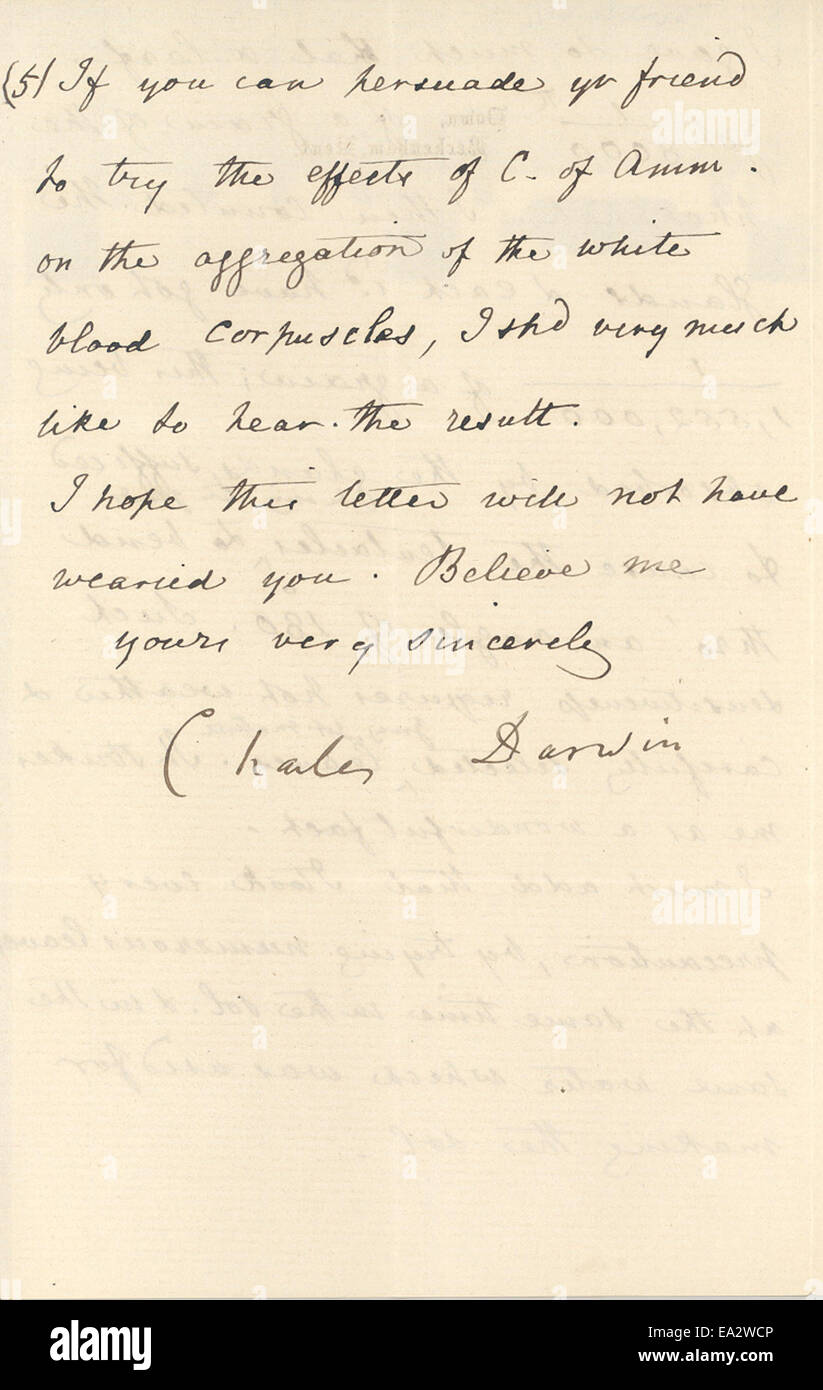 (5) If you can persuade yr friend
to try the effects of C. of Amm.
on the aggregation of the white
blood corpuscles, I shd very much
like to hear the result.
I hope this letter will not have
wearied you. Believe me
yours very sincerely
Charles Darwin
alamy
alamy
www.alamy.com
EA2WCP